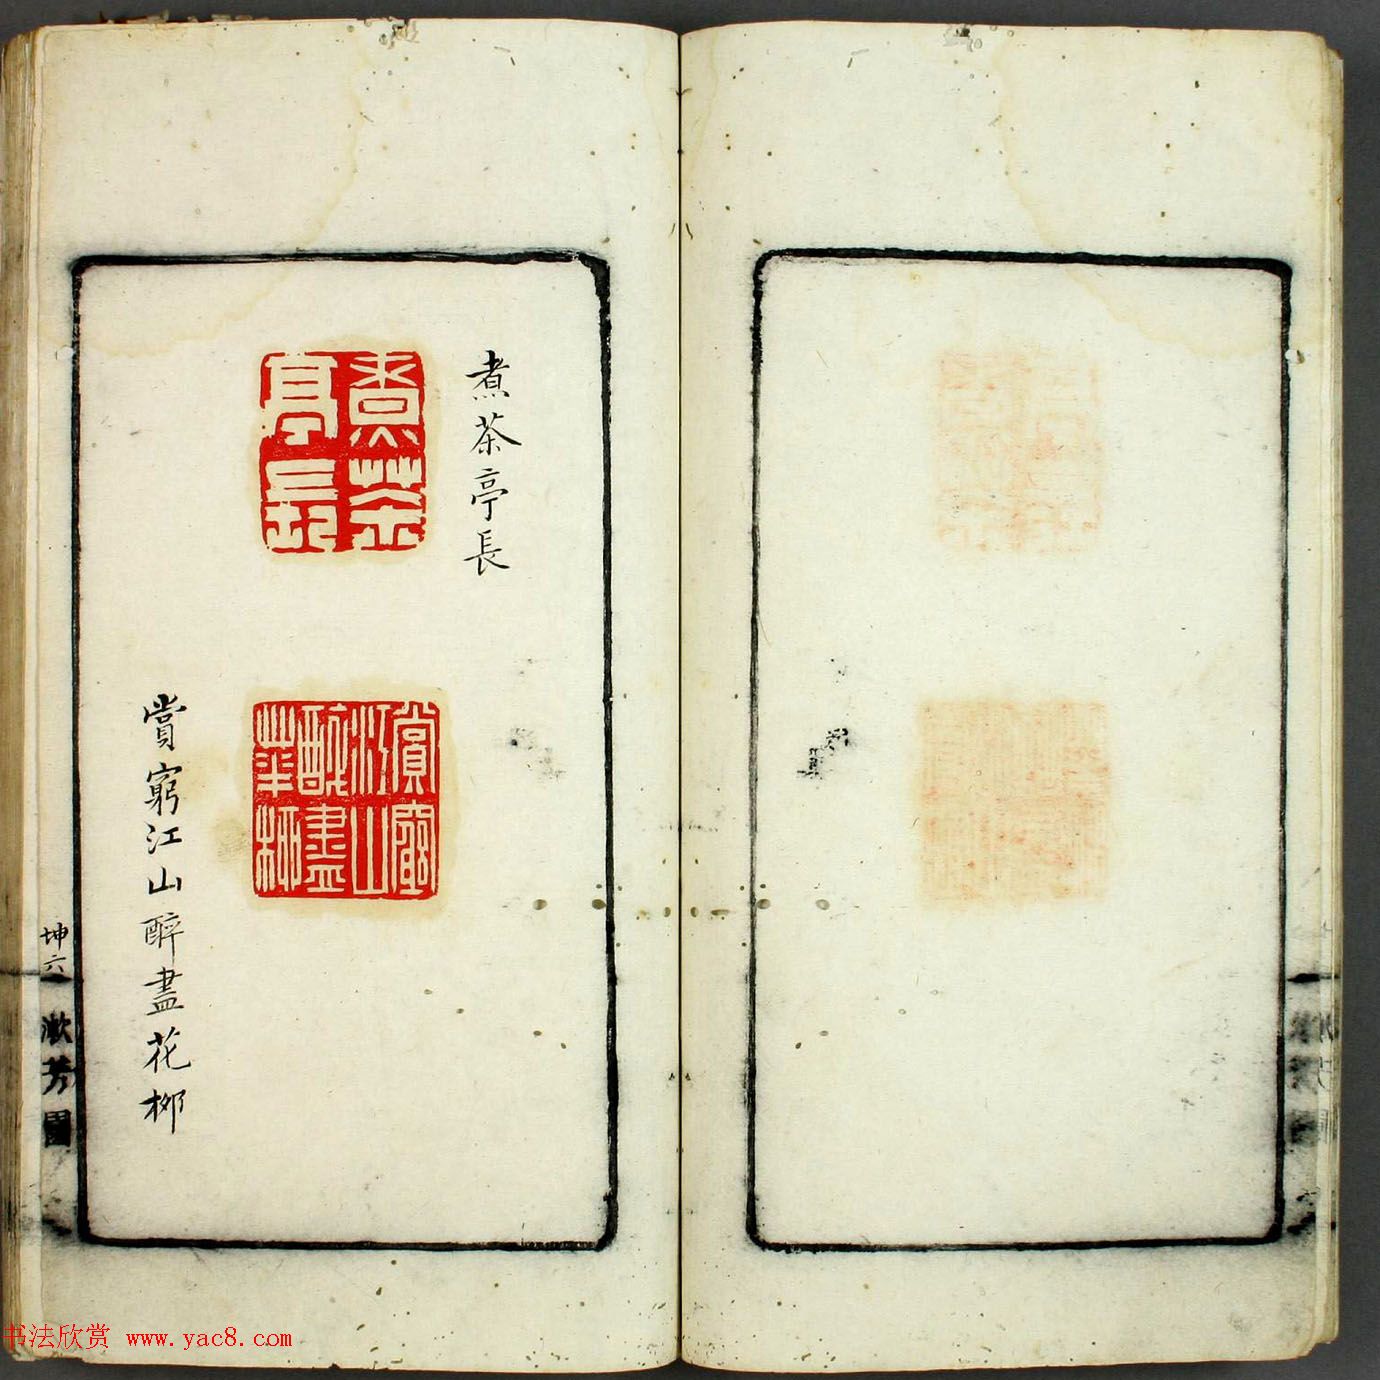 煮茶亭長
煮茶亭長
賞窮江山醉盡華柳
賞窮江山醉盡花柳
坤六
漱芳園
书法欣赏 www.yac8.com